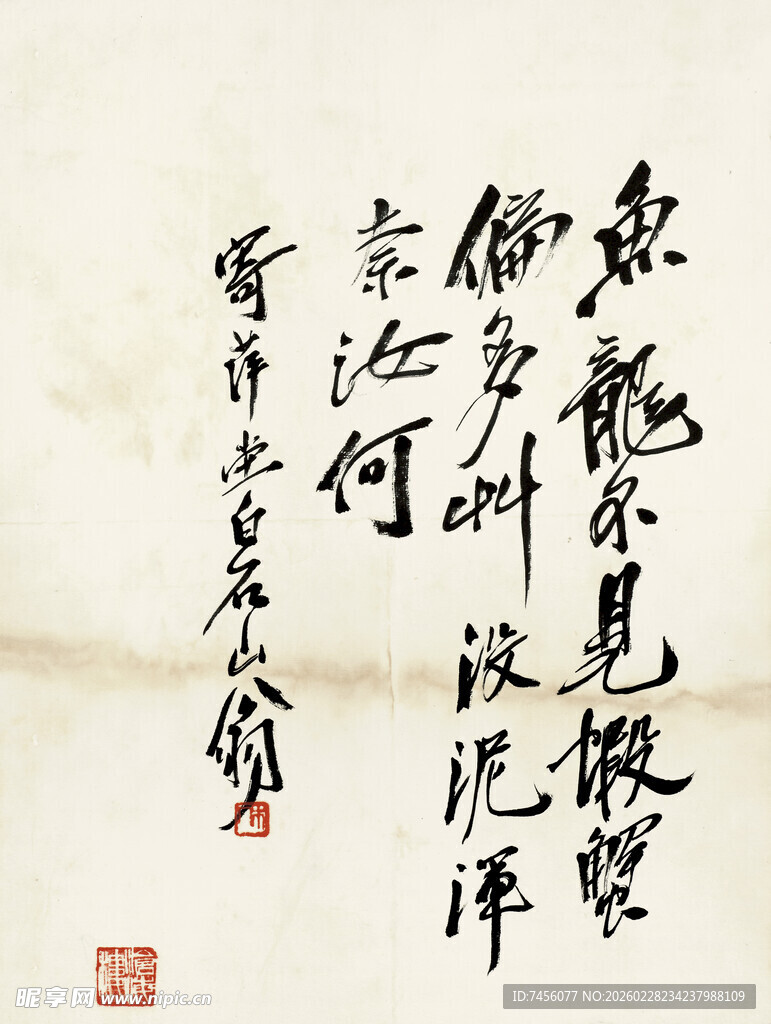 魚龍不見蝦蟹
偏多艸沒泥渾
柰汝何
寄萍堂白石山翁
昵享网 www.nipic.cn
ID:7456077 NO:20260228234237988109